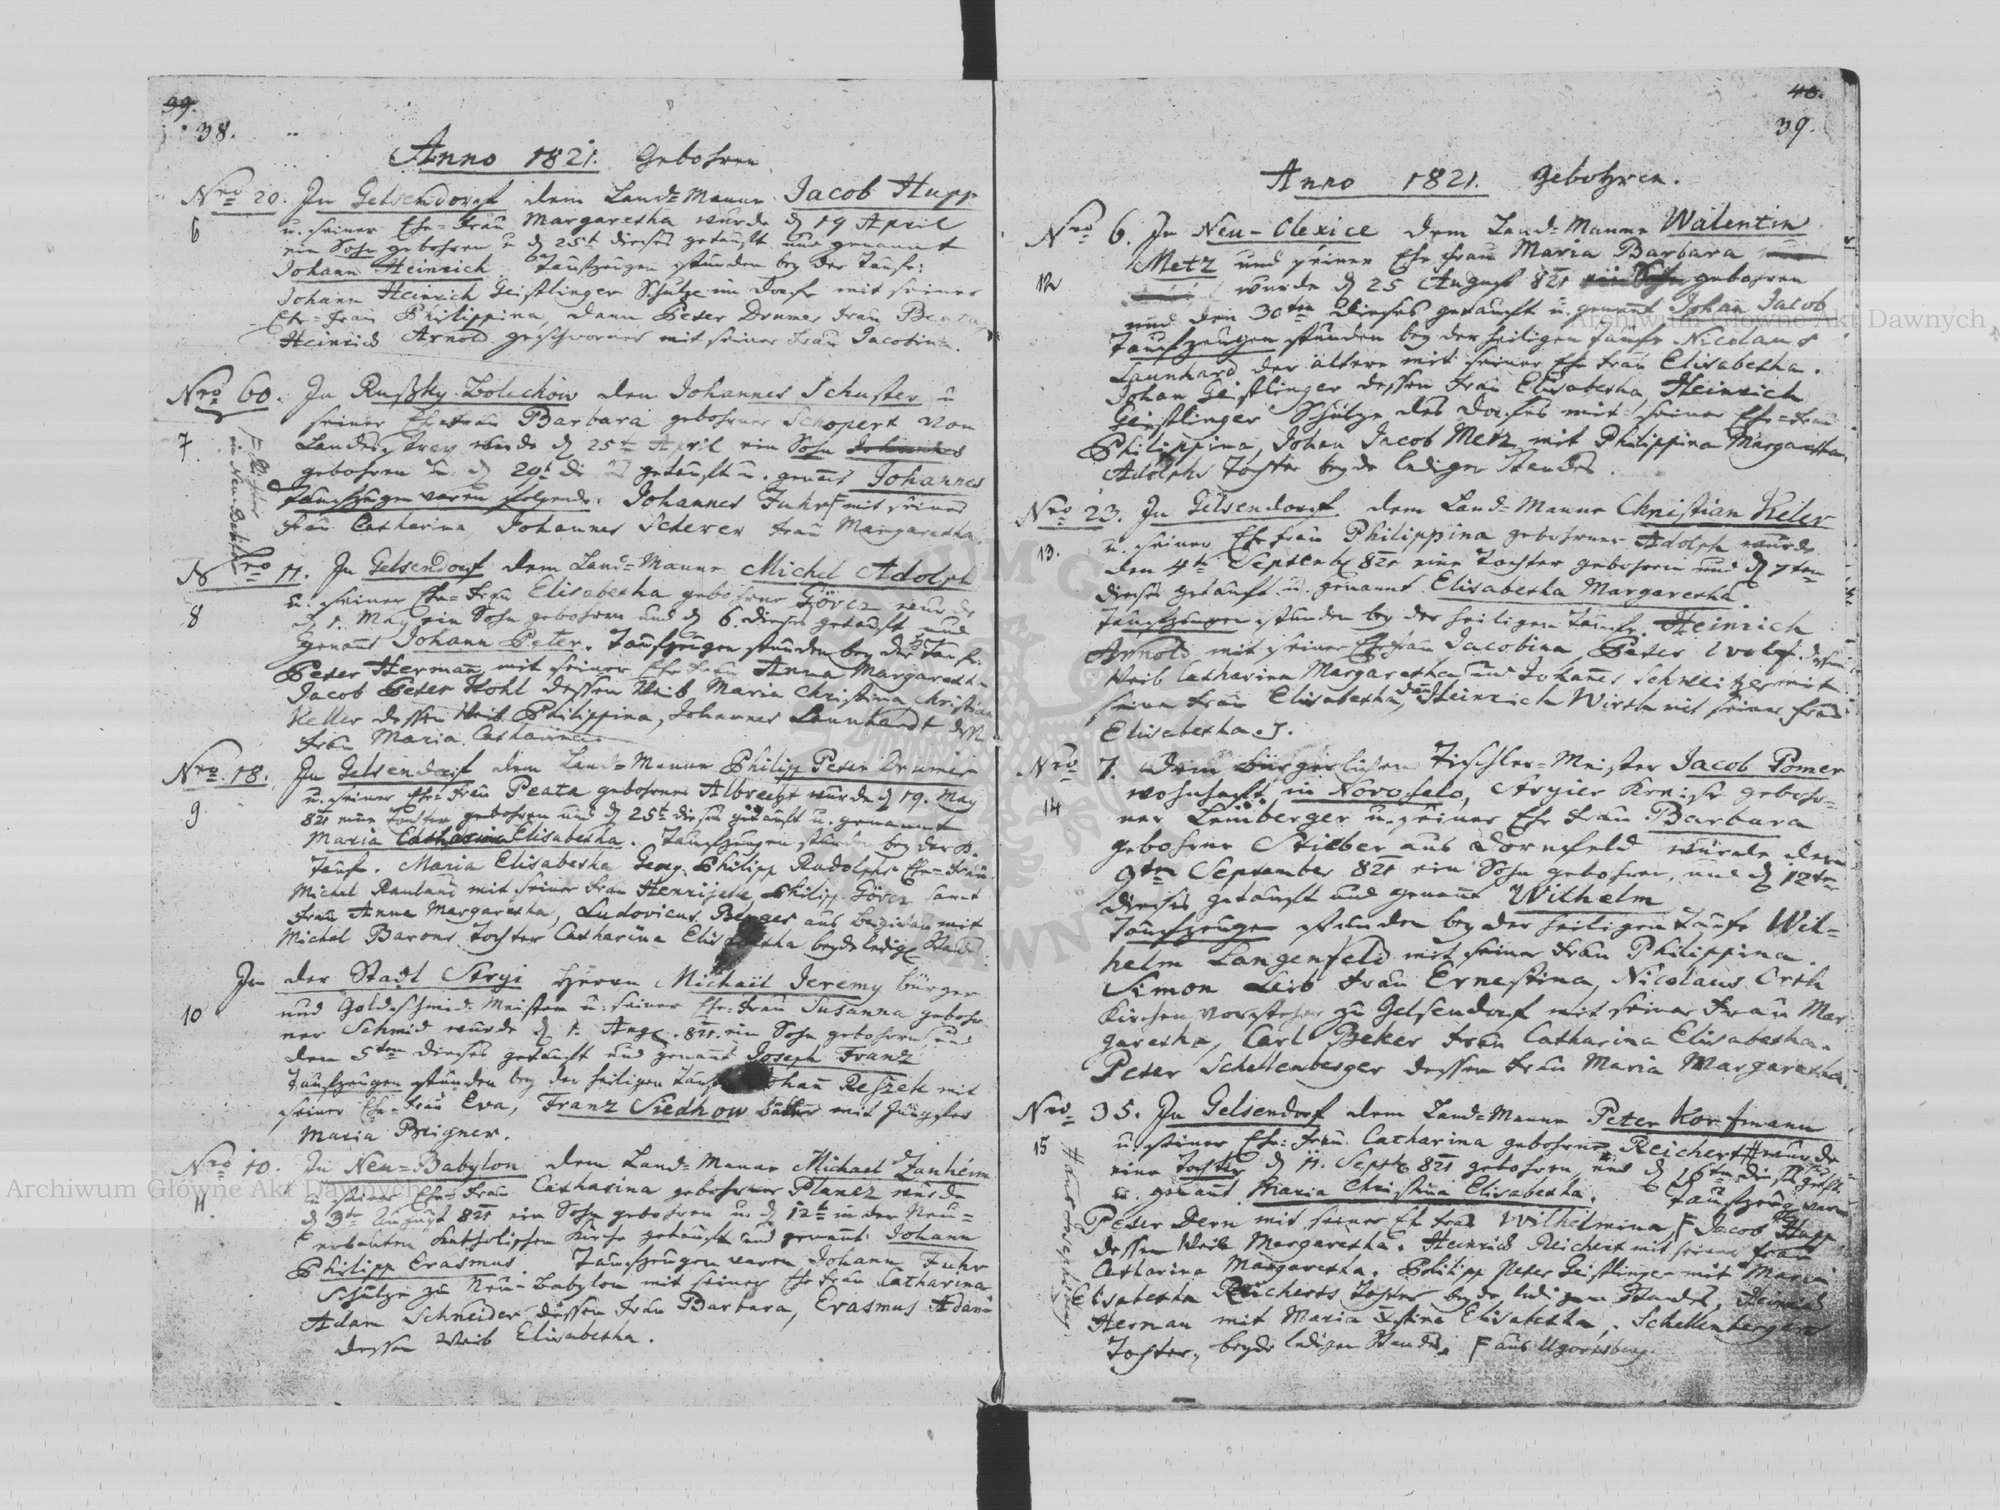 39.
38.
Anno 1821. Gebohren
Nro 20. In Gelsendorf dem Land=Manne Jacob Hupp
6 u. seiner Ehe=Frau Margaretha wurde d 19 April
ein Sohn gebohren u d 25t dieses getauft und genannt
Johann Heinrich. Taufzeugen stunden bey der Taufe:
Johann Heinrich Geistlinger Schulze im Dorfe mit seiner
Ehe=Frau Philippina, dann Peter Drumer Frau Beata
Heinrich Arnold geschworner mit seiner Frau Jacobina.
Nro 60. In Rußky Bolechow den Johannes Schuster u
seiner Ehefrau Barbara gebohrner Schopert von
7. Landestreu wurde d 25t April ein Sohn Johannes
gebohren u. d 29t getauft u. genant Johannes
Taufzeugen waren folgende: Johannes Fuhr F mit seiner
Frau Catharina, Johannes Scherer Frau Margaretha.
Nro 11. In Gelsendorf dem Land=Manne Michel Adolph
u. seiner Ehe=Frau Elisabetha gebohrne Görcz wurde
8 d 1. May ein Sohn gebohren und d 6. dieses getauft und
genant Johann Peter. Taufzeugen stunden bey der Taufe.
Peter Herman mit seiner Ehe Frau Anna Margareth-
Jacob Peter Kohl dessen Weib Maria Christina Christian
Keller dessen Weib Philippina, Johannes Launhardt dess
Frau Maria Catharina
Nro. 18. In Gelsendorf dem Land=Manne Philipp Peter Drumer
u. seiner Ehe=Frau Peata gebohrner Albrecht wurde d 19. May
9 821 eine Tochter gebohren und d 25t dieses getauft u. genannt
Maria Catharina Elisabetha. Taufzeugen stunden bey der H.
Taufe. Maria Elisabetha Georg Philipp Rudolphs Ehe=Frau
Michel Rauland mit seiner Frau Henrijette, Philipp Görcz samt
Frau Anna Margaretha, Ludovicus Berger aus mit
Michel Barons Tochter Catharina Elisabetha beyde ledig Stand
In der Stadt Stryi Herrn Michail Jeremy bürger
und Goldschmid Meistern u. seiner Ehe=Frau Susanna gebohr
10 ner Schmid wurde d 1. Aug. 821 ein Sohn gebohren und
den 5ten dieses getauft und genant Joseph Franz
Taufzeugen stunden bey der heiligen Taufe Johan Reszek mit
seiner Ehe=Frau Eva, Franz Siedhow mit
Maria Brigner.
Nro 10. In Neu=Babylon dem Land=Manne Michael Janheim
u seiner Ehe=Frau Catharina gebohrner Plancz wurde
11. d 3te August 821 ein Sohn gebohren u. d 12t in der Neu=
erbauten katholischen Kirche getauft und genant Johann
Philipp Erasmus. Taufzeugen waren Johann Fuhr
Schulze zu Neu=Babylon mit seiner Ehe Frau Catharina
Adam Schneider, dessen Frau Barbara, Erasmus Adam
dessen Weib Elisabetha.
40.
39.
Anno 1821. gebohren.
Nro 6. In Neu=Olexice dem Land=Manne Walentin
Metz und seiner Ehe Frau Maria Barbara
12 wurde d 25 August 821 ein Sohn gebohren
und den 30ten dieses getauft u. genant Johan Jacob
Taufzeugen stunden bey der heiligen Taufe Nicolaus
Launhard der ältere mit seiner Ehe Frau Elisabetha.
Johan Geistlinger dessen Frau Elisabetha, Heinrich
Geistlinger Schulze des Dorfes mit seiner Ehe=Frau
Philippina, Johan Jacob Metz mit Philippina Margaretha
Adolphs Tochter beyde ledigen Standes.
Nro 23. In Gelsendorf dem Land=Manne Christian Keler
13. u. seiner Ehe Frau Philippina gebohrner Adolph wurde
den 4te September 821 eine Tochter gebohren und d 7ten
dieses getauft u. genannt Elisabetha Margaretha.
Taufzeugen stunden bey der heiligen Taufe. Heinrich
Arnold mit seiner Ehe Frau Jacobina, Peter Wolf dessen
Weib Catharina Margaretha und Johanes Schneitzer mit
seine Frau Elisabetha, dan Heinrich Wirth mit seiner Frau
Elisabetha.
Nro 7. Dem bürgerlichen Tischler=Meister Jacob Pomer
wohnhaft in Novoselo, Stryier Kreise gebohr=
14 ner Lemberger u. seiner Ehe Frau Barbara
gebohrne Stieber aus Dornfeld wurde den
9ten September 821 ein Sohn gebohren, und d 12ten
dieses getauft und genant Wilhelm
Taufzeugen stunden bey der heiligen Taufe Wil=
helm Langenfeld mit seiner Frau Philippina.
Simon Leib Frau Ernestina, Nicolaus Orth
Kirchen vorsteher zu Gelsendorf mit seiner Frau Mar
garetha, Carl Beker Frau Catharina Elisabetha.
Peter Schellenberger dessen Frau Maria Margaretha.
Nro 35. In Gelsendorf dem Land=Manne Peter Korfmann
15 u. seiner Ehe=Frau Catharina gebohrne Reichert wurde
eine Tochter d 11. Septb 821 gebohren, und d 16ten dieses getft
u. genant Maria Christina Elisabetha. Taufzeug waren
Peter Dern mit seiner Eh Frau Wilhelmina, F Jacob Hupp
dessen Weib Margaretha. Heinrich Reichert mit seiner Frau
Catharina Margaretha. Philipp Peter Geistlinger mit Maria
Elisabetha Reicherts Tochter beyde ledigen Standes, Heinrich
Herman mit Maria Justina Elisabetha, Schellenbergers
Tochter, beyde ledigen Standes. F aus Ugartsberg.
Archiwum Główne Akt Dawnych
Archiwum Główne Akt Dawnych